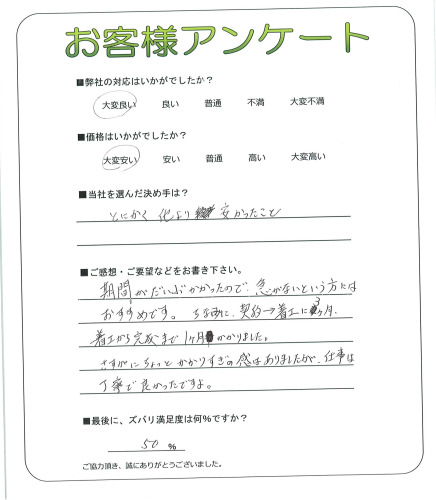 お客様アンケート
■弊社の対応はいかがでしたか？
大変良い 良い 普通 不満 大変不満
■価格はいかがでしたか？
大変安い 安い 普通 高い 大変高い
■当社を選んだ決め手は？
とにかく 他より 安かったこと
■ご感想・ご要望などをお書き下さい。
期間がだいぶかかったので、急がないという方には
おすすめです。ちなみに、契約→着工に3ヶ月、
着工から完成まで1ヶ月かかりました。
さすがにちょっとかかりすぎの感はありましたが、仕事は
丁寧で良かったですよ。
■最後に、ズバリ満足度は何％ですか？
50 ％
ご協力頂き、誠にありがとうございました。